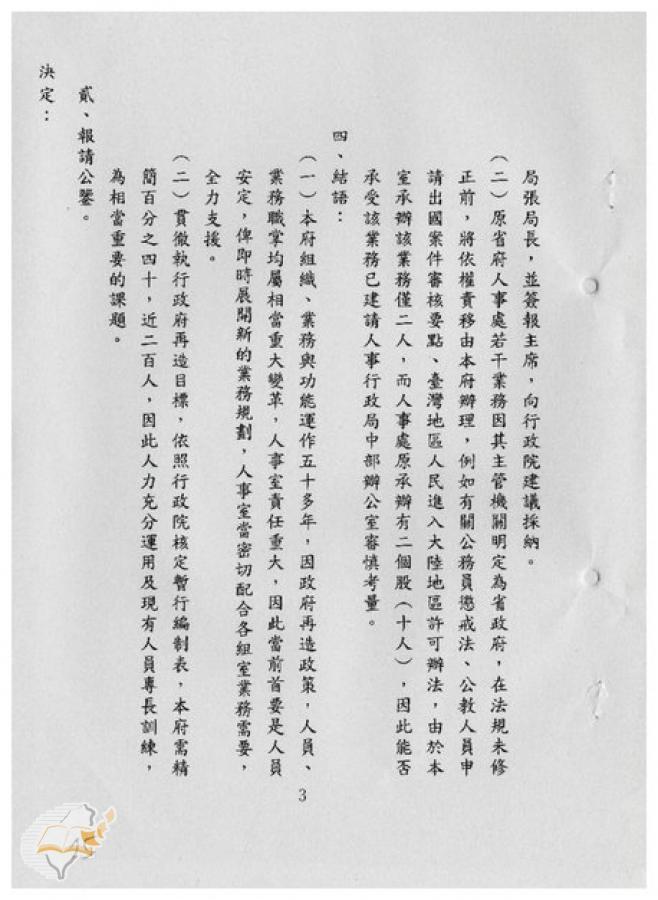 局張局長，並簽報主席，向行政院建議採納。
（二）原省府人事處若干業務因其主管機關明定為省政府，在法規未修
正前，將依權責移由本府辦理，例如有關公務員懲戒法、公教人員申
請出國案件審核要點、臺灣地區人民進入大陸地區許可辦法，由於本
室承辦該業務僅二人，而人事處原承辦有二個股（十人），因此能否
承受該業務已建請人事行政局中部辦公室審慎考量。
四、結語：
（一）本府組織、業務與功能運作五十多年，因政府再造政策，人員、
業務職掌均屬相當重大變革，人事室責任重大，因此當前首要是人員
安定，俾即時展開新的業務規劃，人事室當密切配合各組室業務需要，
全力支援。
（二）貫徹執行政府再造目標，依照行政院核定暫行編制表，本府需精
簡百分之四十，近二百人，因此人力充分運用及現有人員專長訓練，
為相當重要的課題。
貳、報請公鑒。
決定：
3